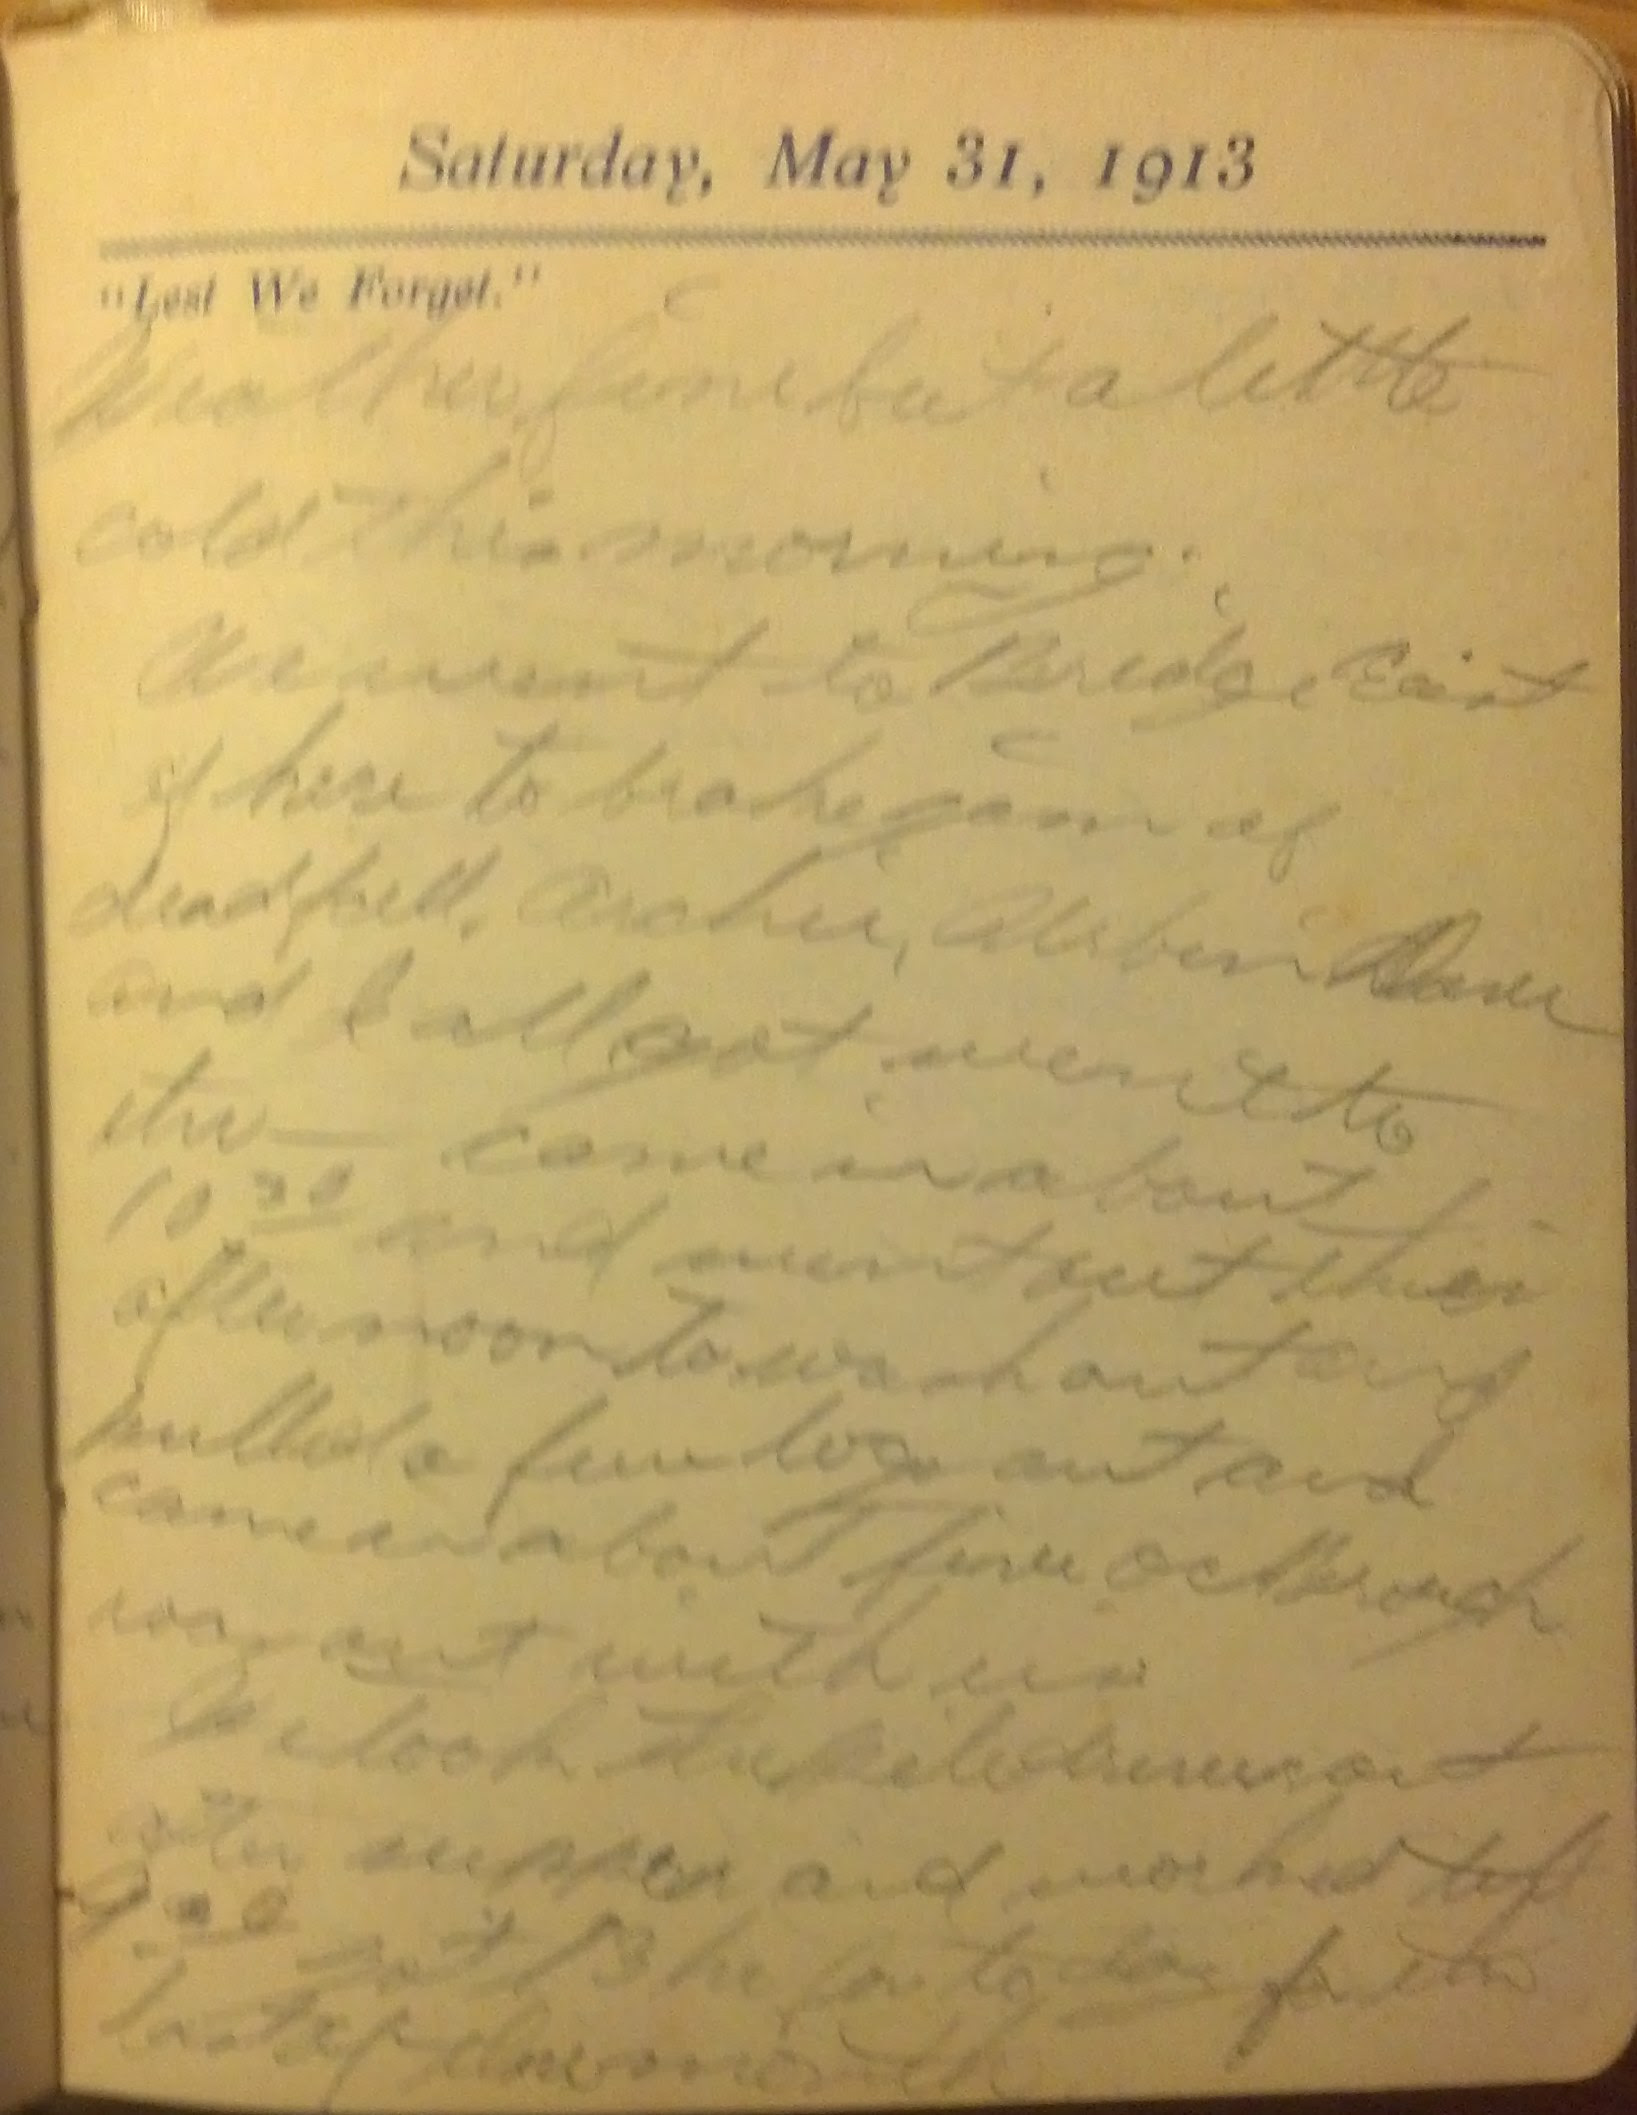 Saturday, May 31, 1913
"Lest We Forget."
Weather fine but a little
cold this morning.
We went to Bridge East
of here to brake jam of
deadfall. Archie, Albin Dave
and I all got went to
the— came in about
10 30 and went out this
afternoon to wash out and
pulled a few logs out and
came in about five oc
was out with us
We took the out
after supper and worked till
9 30 got 13 hr for to day for the
last of the month